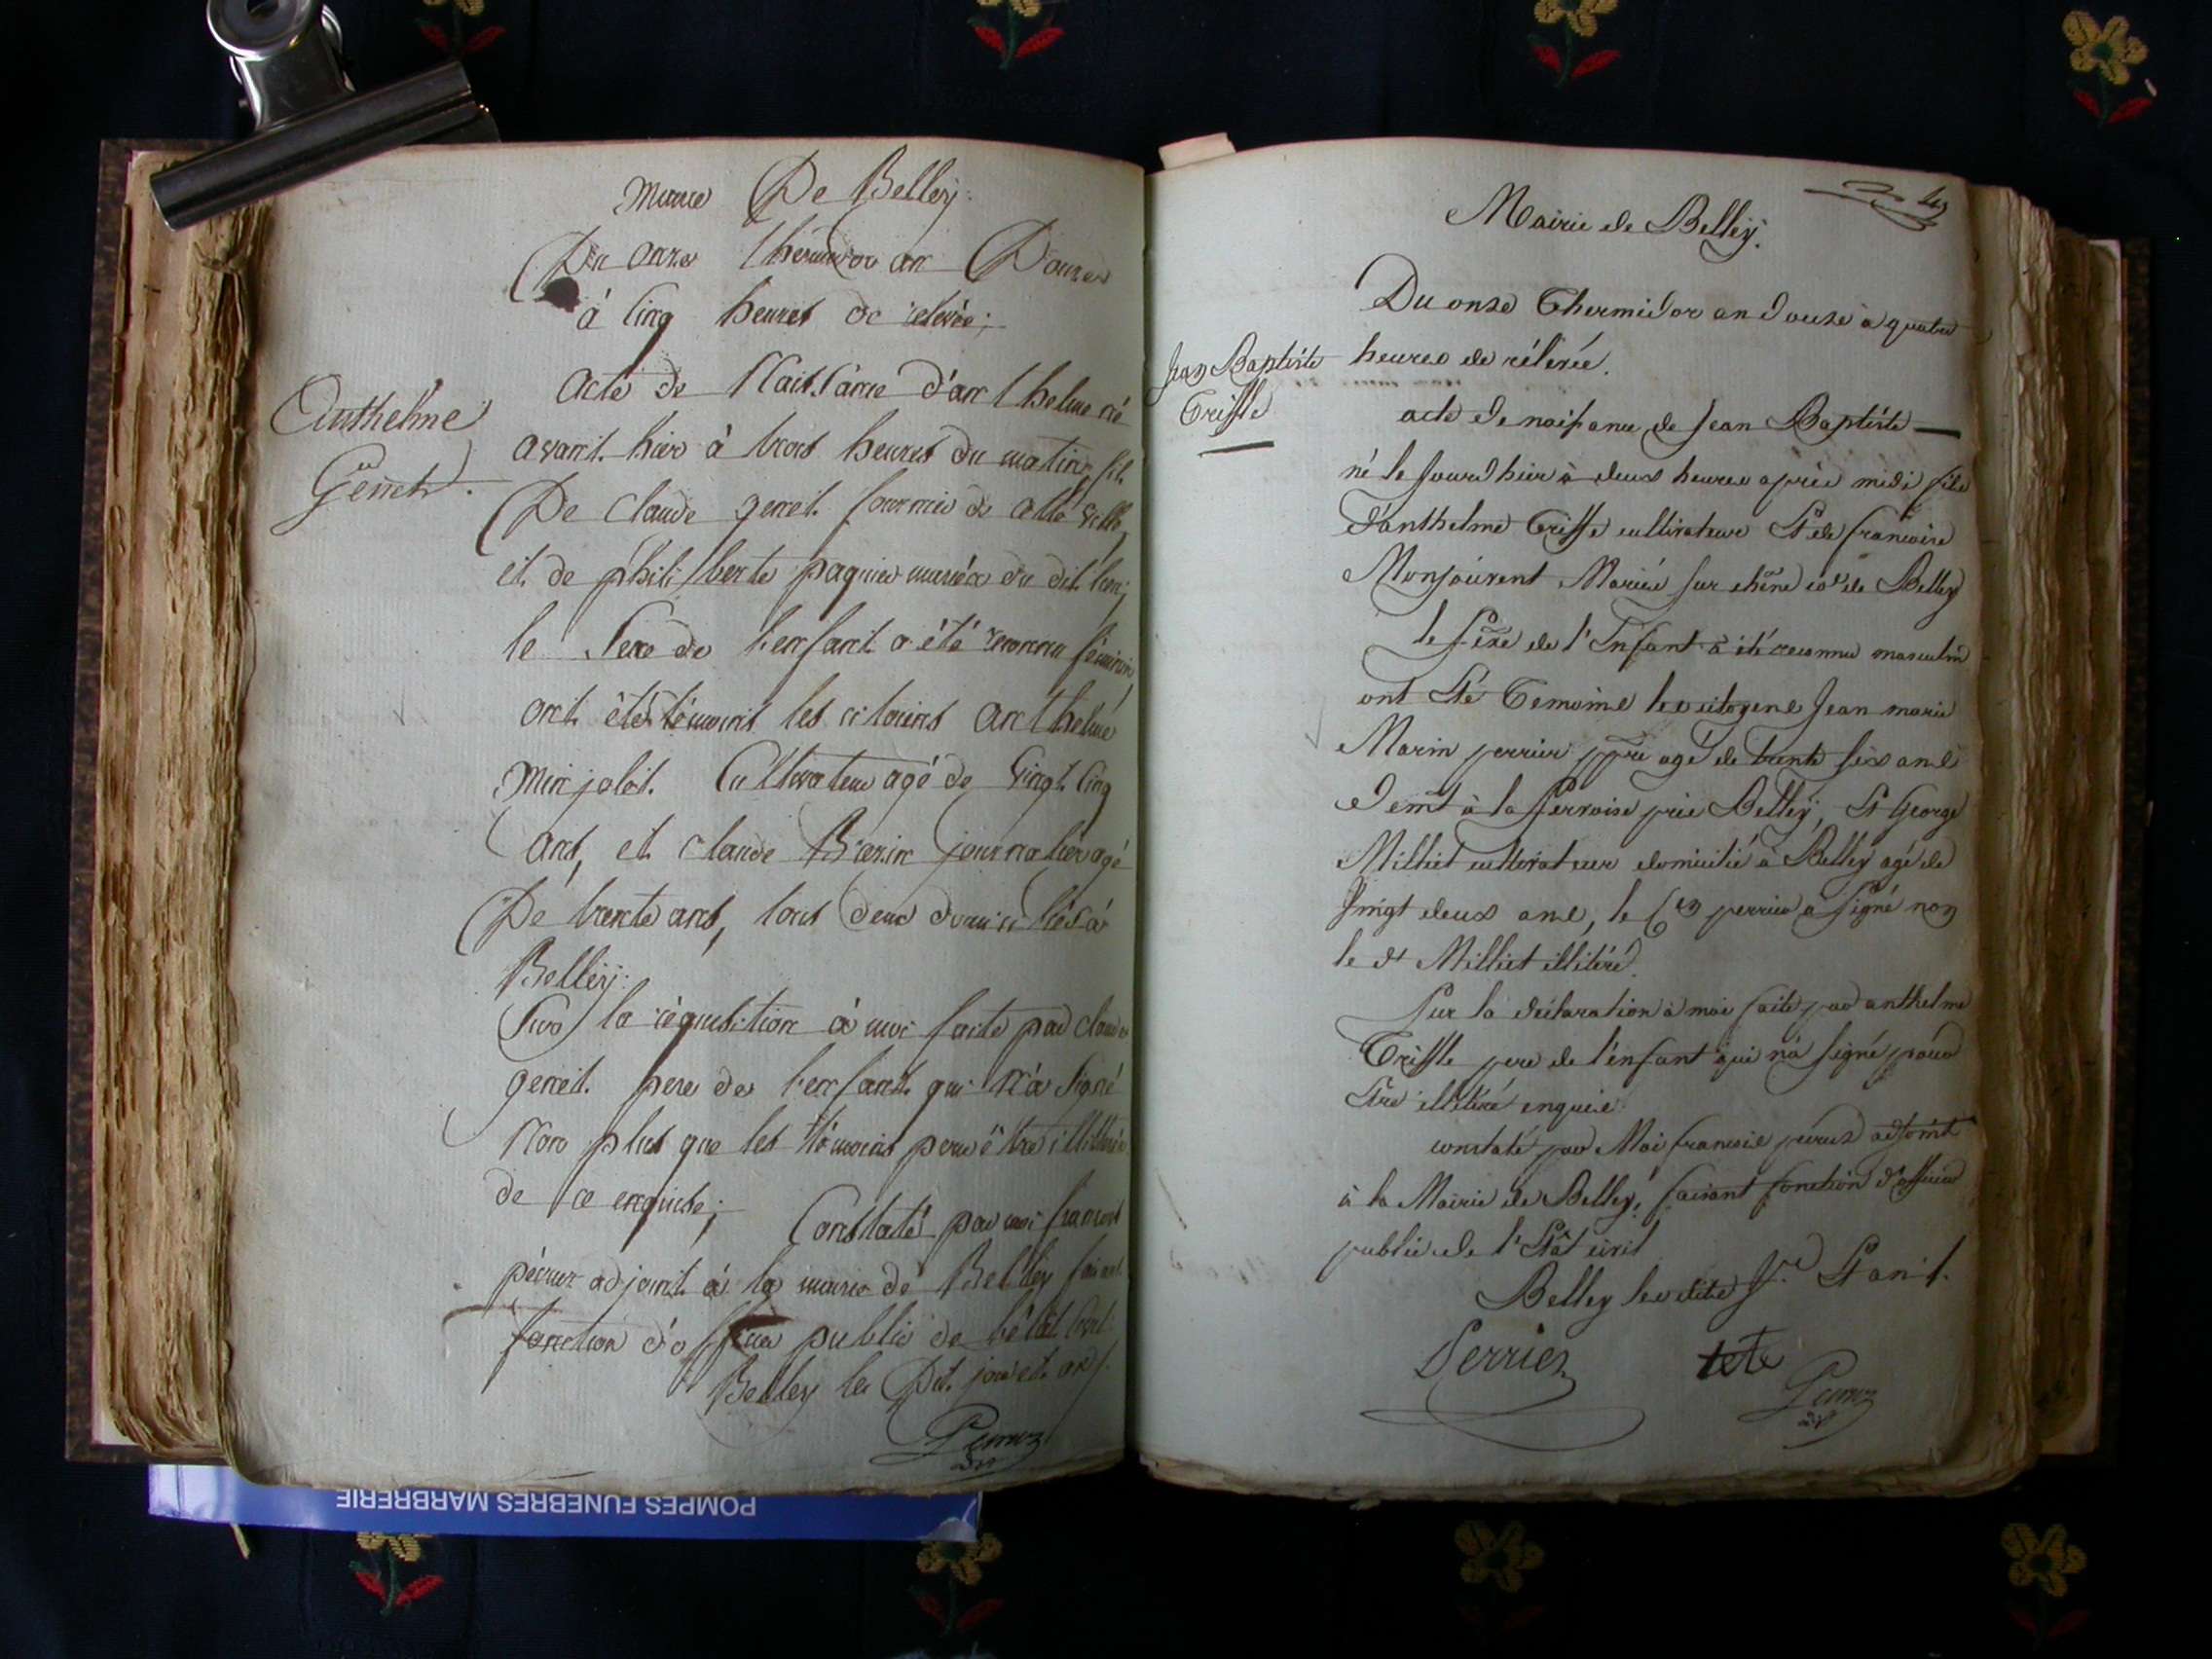 Mairie De Belley.
Du onze thermidor an Douze
à cinq heures de relevée;
Anthelme
Genet.
acte de Naissance d'anthelme né
avant hier à trois heures du matin fils
De claude genet fournier de cette ville,
et de philiberte paquier mariéx du dit lieu;
le Sexe de l'enfant a été reconnu féminin
ont été témoins les citoiens anthelme
minjolet. Cultivateur agé de vingt cinq
ans, et claude journalier agé
De trente ans, tous deux domiciliés à
Belleÿ:
Sur la réquisition à moi faite par claude
genet. pere de l'enfant qui n'a Signé
Non plus que les témoins pour être illitérés
de ce enquis; Constaté par moi francois
péruz adjoint à la mairie de Belley faisant
fonction d'officier public de l'état civil
Belley les Dit. jour et an.
Peruz
adj
Mairie de Belleÿ.
Du onze Thermidor an douze à quatre
heures de rélevée.
Jean Baptiste
Triffle
acte de naissance de Jean Baptiste
né le jourd'hier à deux heures après midi fils
d'anthelme Triffe cultivateur Et de francoise
Monjouvent Mariés sur chêne de Belley
le séxe de l'Enfant à été reconnu masculin
ont Eté Temoins les citoyens Jean marie
Marin perrier ppre agé de trente six ans
demt à la près Belleÿ, Et George
Milliet cultivateur domicilié à Belley agé de
Vingt deux ans, le Cen perrier à signé non
le dt Milliet illitéré.
Sur la déclaration à moi faite par anthelme
Triffle pere de l'énfant qui n'à signé pour
Etre illitéré enquis.
constaté par Moi francois péruz adjoint
à la Mairie de Belley, faisant fonction d'officier
public de l'Etât civil
Belley les dits Jr. Et an.
Perrier
tete
Peruz
adj
POMPES FUNEBRES MARBRERIE